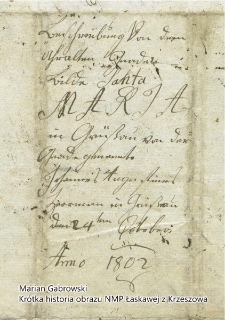 Beschreibung Von dem
Uhralten Gnaden
Bilde Sancta
MARIA
in Grüssau von der
Gnade genannte
Johannes
in Grüssau
den 24ten Octobris
Anno 1802
Marian Gabrowski
Krótka historia obrazu NMP Łaskawej z Krzeszowa